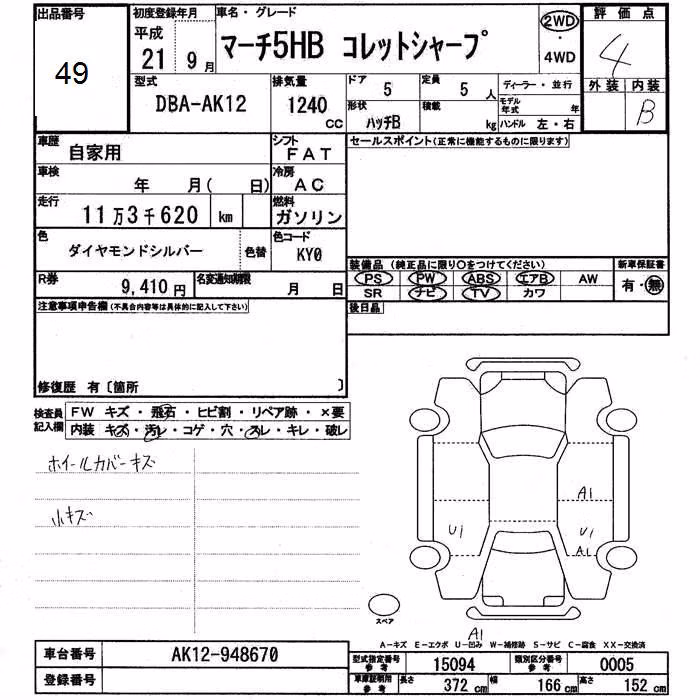 出品番号
49
初度登録年月
平成
21年9月
車名・グレード
マーチ5HB コレットシャープ
2WD
・
4WD
評価点
4
外装 内装
B
型式
DBA-AK12
排気量
1240
CC
ドア
5
定員
5人
形状
ハッチB
積載
kg
ディーラー・並行
モデル年式
年
ハンドル 左・右
車歴
自家用
シフト
FAT
車検
年 月( 日)
冷房
AC
走行
11万3千620 km
燃料
ガソリン
色
ダイヤモンドシルバー
色替
色コード
KY0
R券
9,410円
名変通知期限
月 日
セールスポイント(正常に機能するものに限ります)
装備品 (純正品に限り○をつけてください)
PS PW ABS エアB AW
SR ナビ TV カワ
新車保証書
有・無
後日品
注意事項申告欄(不具合内容等は具体的に記入して下さい)
修復歴 有〔箇所 〕
検査員
記入欄
FW キズ・飛石・ヒビ割・リペア跡・×要
内装 キズ・汚レ・コゲ・穴・スレ・キレ・破レ
ホイールカバーキズ
小キズ
A1
U1
U1
A1
スペア
A1
A-キズ E-エクボ U-凹み W-補修跡 S-サビ C-腐食 XX-交換済
車台番号
AK12-948670
登録番号
型式指定番号
参考
15094
類別区分番号
参考
0005
車庫証明用
参考
長さ
372 cm
幅
166 cm
高さ
152 cm